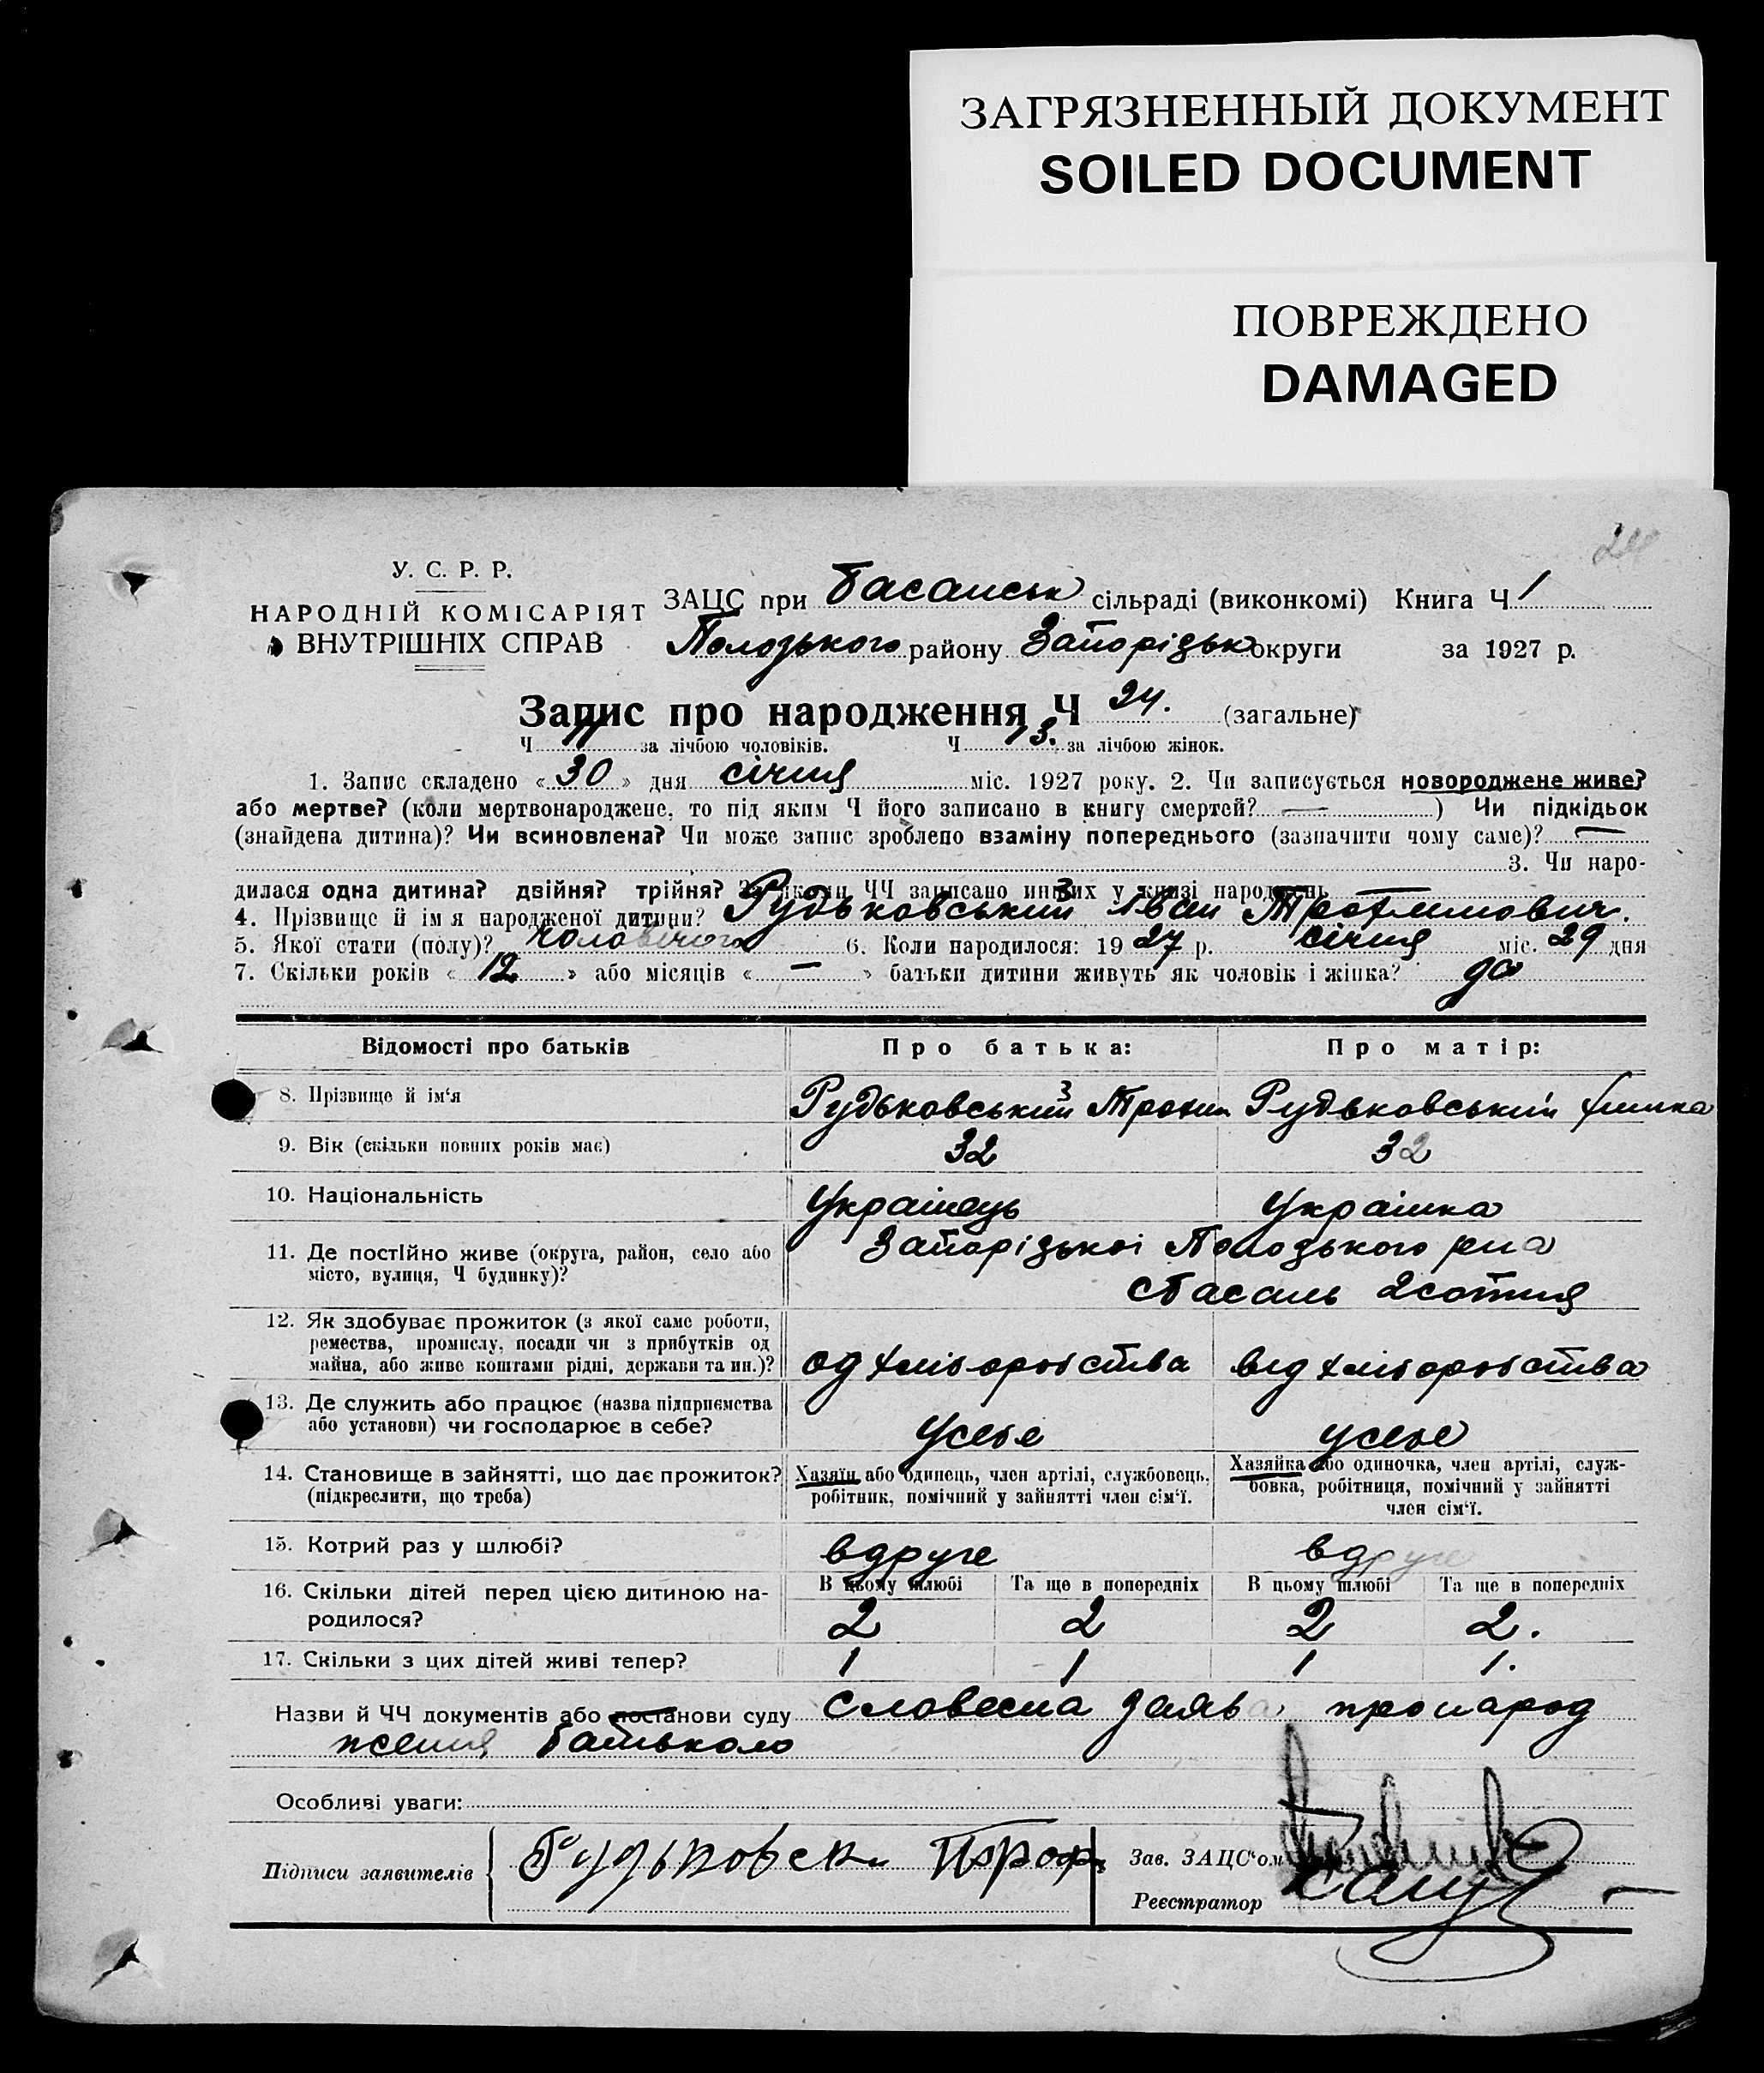 ЗАГРЯЗНЕННЫЙ ДОКУМЕНТ
SOILED DOCUMENT
ПОВРЕЖДЕНО
DAMAGED
24
У. С. Р. Р.
НАРОДНІЙ КОМІСАРІЯТ
ВНУТРІШНІХ СПРАВ
ЗАЦС при Басанськ сільраді (виконкомі) Книга Ч 1
Пологзького району Запорізьк округи за 1927 р.
Запис про народження Ч 24. (загальне)
Ч 11 за лічбою чоловіків. Ч 13. за лічбою жінок.
1. Запис складено « 30 » дня січня міс. 1927 року. 2. Чи записується новороджене живе?
або мертве? (коли мертвонароджене, то під яким Ч його записано в книгу смертей? — ) Чи підкідьок
(знайдена дитина)? Чи всиновлена? Чи може запис зроблено взаміну попереднього (зазначити чому саме)? —
3. Чи наро-
дилася одна дитина? двійня? трійня? За якими ЧЧ записано инших у книзі народжень —
4. Прізвище й ім я народженої дитини? Рудьковський Іван Трофимович.
5. Якої стати (полу)? чоловічого 6. Коли народилося: 19 27 р. січня міс. 29 дня
7. Скільки років « 12 » або місяців « — » батьки дитини живуть як чоловік і жінка? да
Відомості про батьків Про батька: Про матір:
8. Прізвище й ім'я Рудьковський Трохим Рудьковський
9. Вік (скільки повних років має) 32 32
10. Національність Українець Українка
11. Де постійно живе (округа, район, село або
місто, вулиця, Ч будинку)?
Запорізької Пологзького рна
с Басань 2 сотня
12. Як здобуває прожиток (з якої саме роботи,
ремества, промислу, посади чи з прибутків од
майна, або живе коштами рідні, держави та ин.)? од хліборобства від хліборобства
13. Де служить або працює (назва підприємства
або установи) чи господарює в себе? усебе усебе
14. Становище в зайнятті, що дає прожиток?
(підкреслити, що треба)
Хазяїн або одинець, член артілі, службовець,
робітник, помічний у зайнятті член сім'ї.
Хазяйка або одиночка, член артілі, служ-
бовка, робітниця, помічний у зайнятті
член сім'ї.
15. Котрий раз у шлюбі? вдруге вдруге
16. Скільки дітей перед цією дитиною на-
родилося?
В цьому шлюбі Та ще в попередніх В цьому шлюбі Та ще в попередніх
2 2 2 2.
17. Скільки з цих дітей живі тепер? 1 1 1 1.
Назви й ЧЧ документів або постанови суду словесна заява про народ
ження батьком
Особливі уваги:
Підписи заявителів Рудьковск Троф
Зав. ЗАЦС'ом
Реєстратор